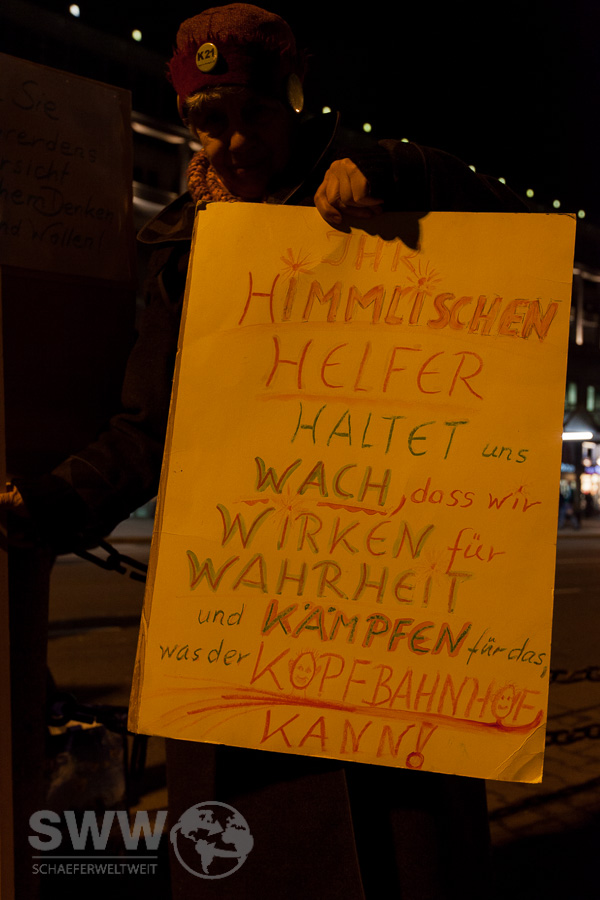 K21
Sie
ersicht
Denken
und Wollen!
IHR
HIMMLISCHEN
HELFER
HALTET uns
WACH, dass wir
WIRKEN für
WAHRHEIT
und KÄMPFEN für das,
was der KOPFBAHNHOF
KANN!
SWW
SCHAEFERWELTWEIT